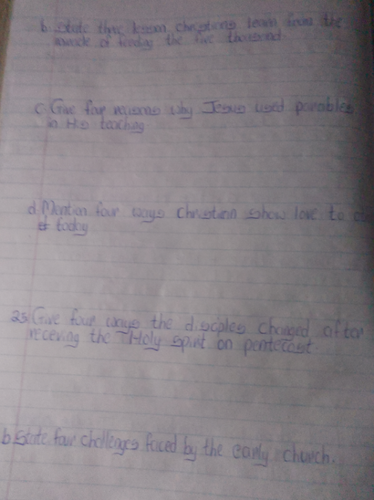 b. State three lesson christians learn from the
miracle of feeding the five thousand.
c. Give four reasons why Jesus used parables
in His teaching
d. Mention four ways Christian show love to
today
2a. Give four ways the disciples changed after
receiving the Holy spirit on pentecost
b. State four challenges faced by the early church.